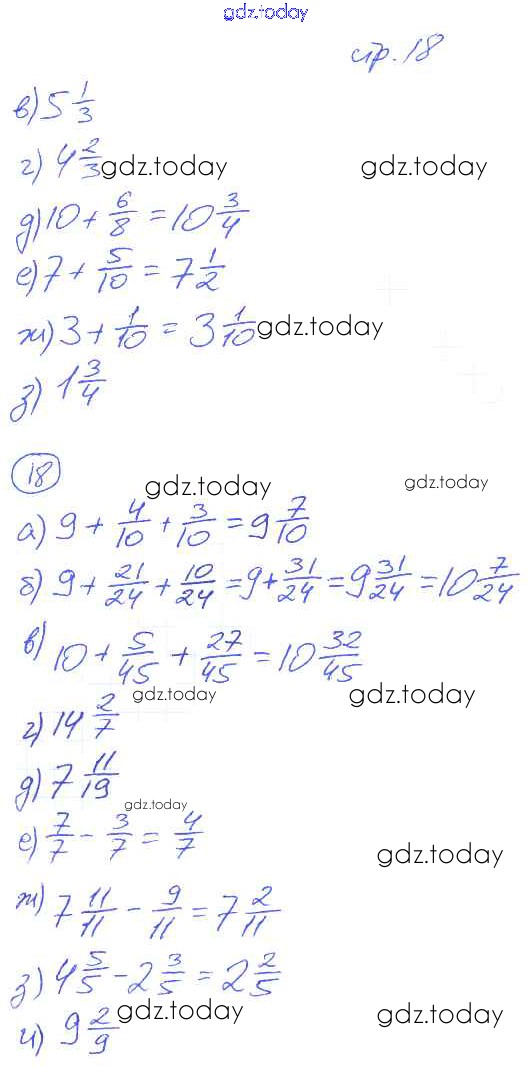 gdz.today
стр. 18
в) 5 1/3
г) 4 2/3 gdz.today gdz.today
д) 10 + 6/8 = 10 3/4
е) 7 + 5/10 = 7 1/2
ж) 3 + 1/10 = 3 1/10 gdz.today
з) 1 3/4
18 gdz.today gdz.today
а) 9 + 4/10 + 3/10 = 9 7/10
gdz.today gdz.today
б) 9 + 21/24 + 10/24 = 9 + 31/24 = 9 31/24 = 10 7/24
в) 10 + 5/45 + 27/45 = 10 32/45
gdz.today gdz.today
г) 14 2/7
д) 7 11/19
gdz.today
е) 7/7 - 3/7 = 4/7
gdz.today
ж) 7 11/11 - 9/11 = 7 2/11
з) 4 5/5 - 2 3/5 = 2 2/5
и) 9 2/9 gdz.today gdz.today